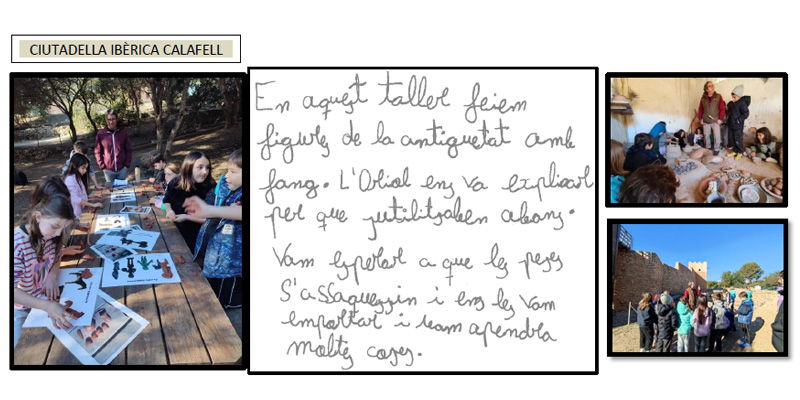 CIUTADELLA IBÈRICA CALAFELL
En aquest taller feiem
figures de la antiguetat amb
fang. L'Oriol ens va explicar
per que s'utilitzaben abans.
Vam esperar a que les peçes
s'assaquessin i ens les vam
emportar i vam apendra
moltes coses.